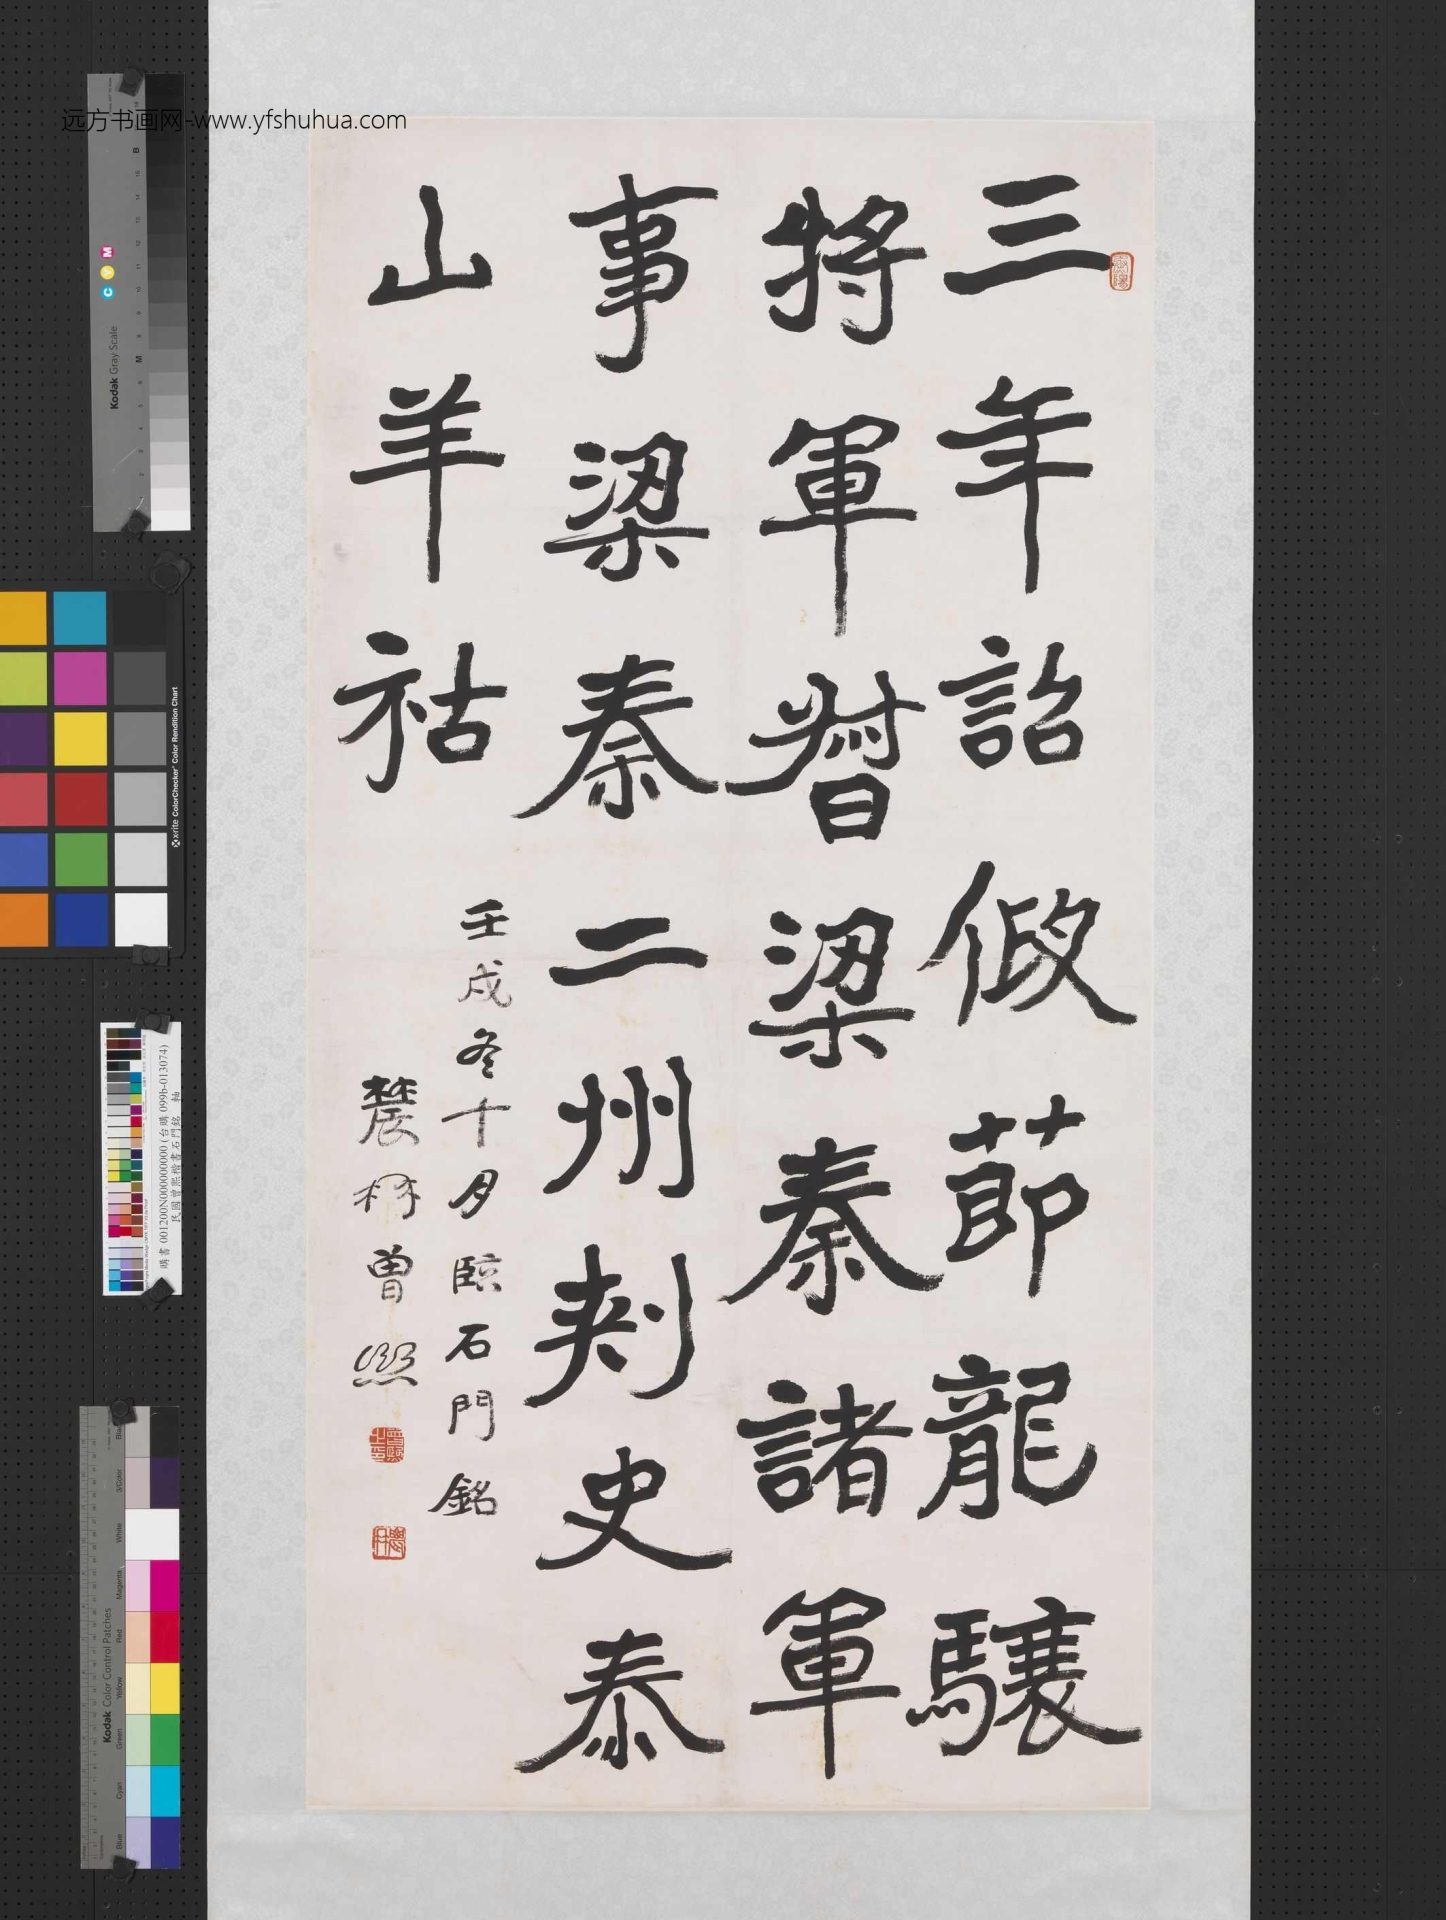 远方书画网-www.yfshuhua.com
三年詔假節龍驤
將軍督梁秦諸軍
事梁秦二州刺史泰
山羊祉
壬戌冬十月臨石門銘
農髯曾熙
Kodak Gray Scale
x-rite ColorChecker Color Rendition Chart
購書 001200N000000000 (台購 099b-013074)
民國曾熙楷書石門銘 軸
Kodak Color Control Patches
Blue Cyan Green Yellow Red Magenta White 3/Color Black